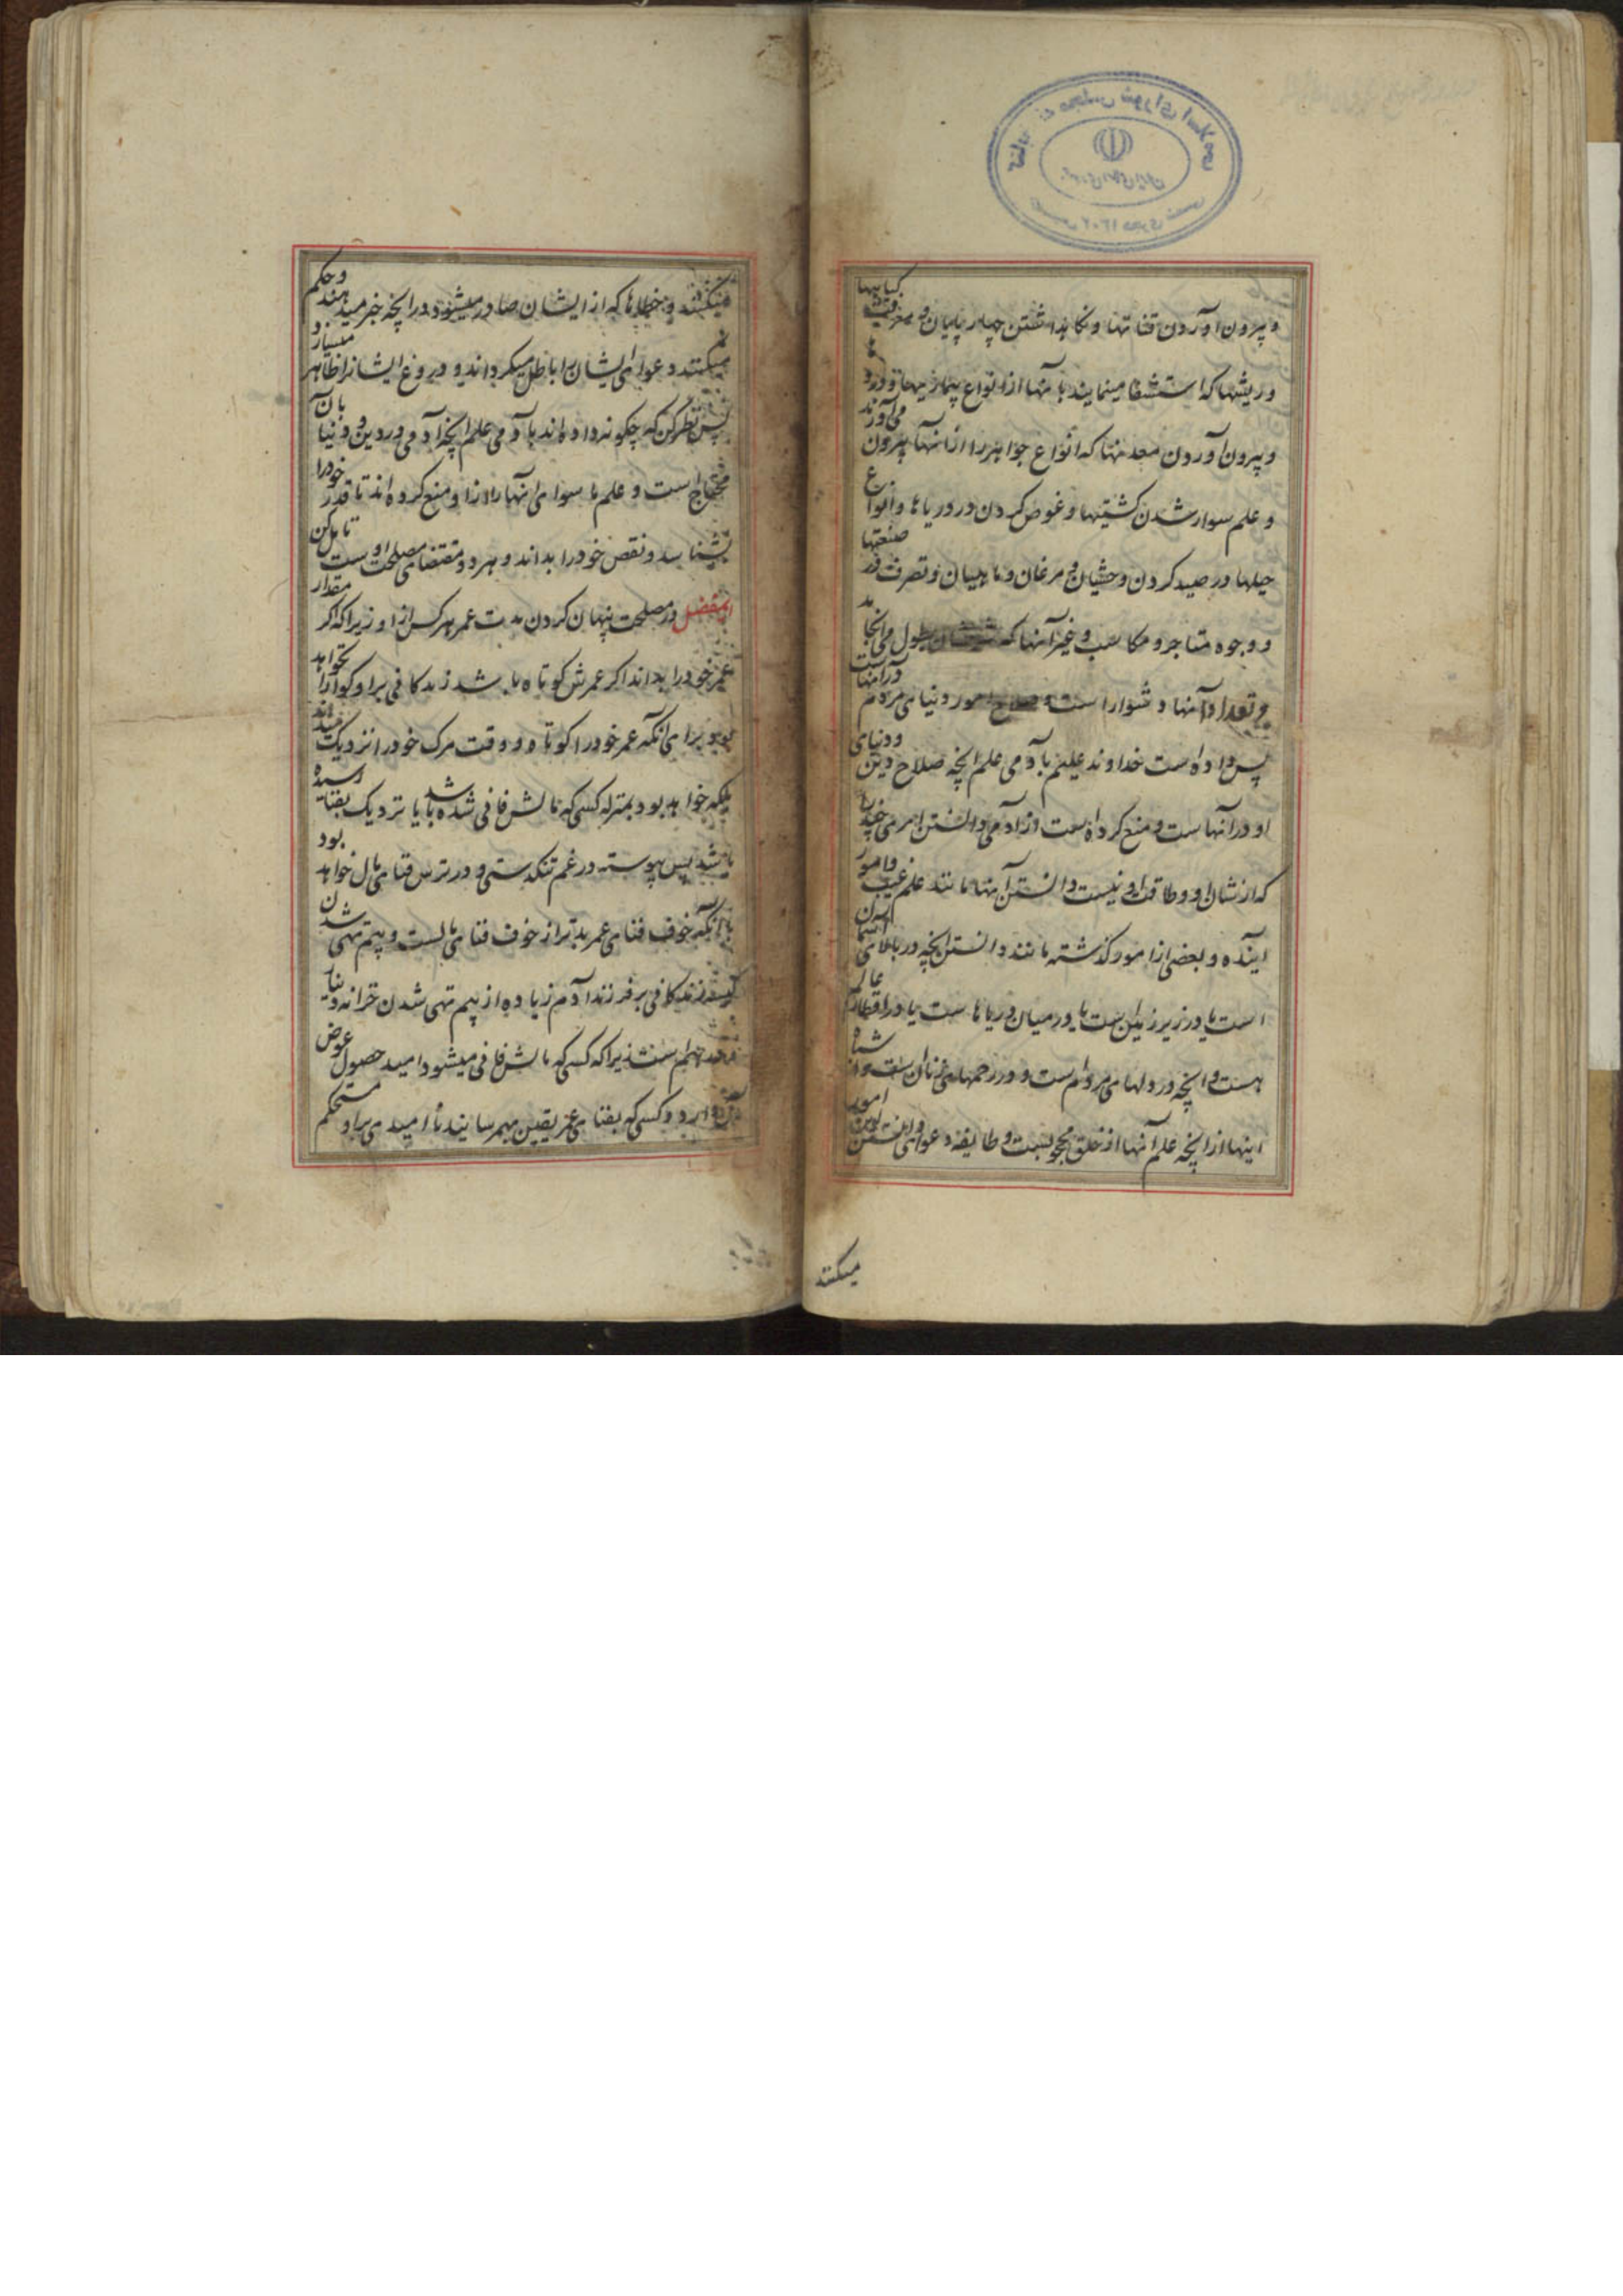 و بیرون آوردن قناتها و نگاهداشتن چهار پایان و معرفت گیاهها
و ریشها که استشفا مینمایند بآنها از انواع بیماریها و دردها
و بیرون آوردن معدنها که انواع جواهر را از آنها بیرون می‌آورند
و علم سوار شدن کشتیها و غوص کردن در دریاها و انواع
حیلها در صید کردن وحشیان و مرغان و ماهیان و تصرف در صنعتها
و وجوه متاجر و مکاسب و غیر آنها که بطول می‌انجامد
و تعداد آنها دشوار است و صلاح امور دنیای مردم در آنهاست
پس داده است خداوند علیم بآدمی علم آنچه صلاح دین و دنیای
او در آنهاست و منع کرده است از آدمی دانستن امری چند را
که از شان او و طاقت او نیست دانستن آنها مانند علم غیب و امور
آینده و بعضی از امور گذشته مانند دانستن آنچه در بالای آسمان
است یا در زیر زمین است یا در میان دریاها است یا در اقطار عالم
هست و آنچه در دلهای مردم است و در رحمهای زنان است و اشباه
اینها از آنچه علم آنها از خلق محجوبست و طایفه دعوای دانستن این امور
میکنند
میکنند و خطاها که از ایشان صادر میشود در آنچه خبر میدهند و حکم
میکنند دعوای ایشان را باطل میگرداند و دروغ ایشانرا ظاهر میسازد
پس نظر کن که چگونه داده‌اند بآدمی علم آنچه آدمی در دین و دنیا بآن
محتاج است و علم ما سوای آنها را از او منع کرده‌اند تا قدر خود را
بشناسد و نقص خود را بداند و هر دو مقتضای مصلحت اوست تامل کن
ای مفضل در مصلحت پنهان کردن مدت عمر هر کس از او زیرا که اگر مقدار
عمر خود را بداند اگر عمرش کوتاه باشد زندگانی بر او گوارا نخواهد
بود برای آنکه عمر خود را کوتاه و وقت مرگ خود را نزدیک میداند
بلکه خواهد بود بمنزله کسی که مالش فانی شده باشد یا نزدیک بفنا رسیده
باشد پس پیوسته در غم تنگدستی و در ترس فنای مال خواهد بود
با آنکه خوف فنای عمر بدتر از خوف فنای مالست و بیم تهی شدن
کیسه زندگانی بر فرزند آدم زیاده از بیم تهی شدن خزانه دینار
و درهم است زیرا که کسی که مالش فانی میشود امید حصول عوض
آن دارد و کسی که بفنای عمر یقین بهم رسانید ناامیدی بر او مستحکم